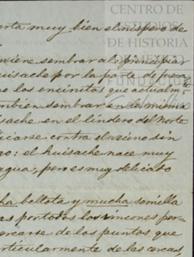 CENTRO DE
ESTUDIOS
DE HISTORIA
DE
rta muy bien el níspero de
viene sembrar al principio
huisache por la parte de fuera
o los encinitos que actualm.te
mbien sembrar en la misma
sache en el lindero del Norte
icarse contra el vecino sin
no: el huisache nace muy
agua, pero es muy delicado
cha bellota y mucha semilla
as portodos los rincones por
ercarse de los puntos que
articularmente de las cercas,